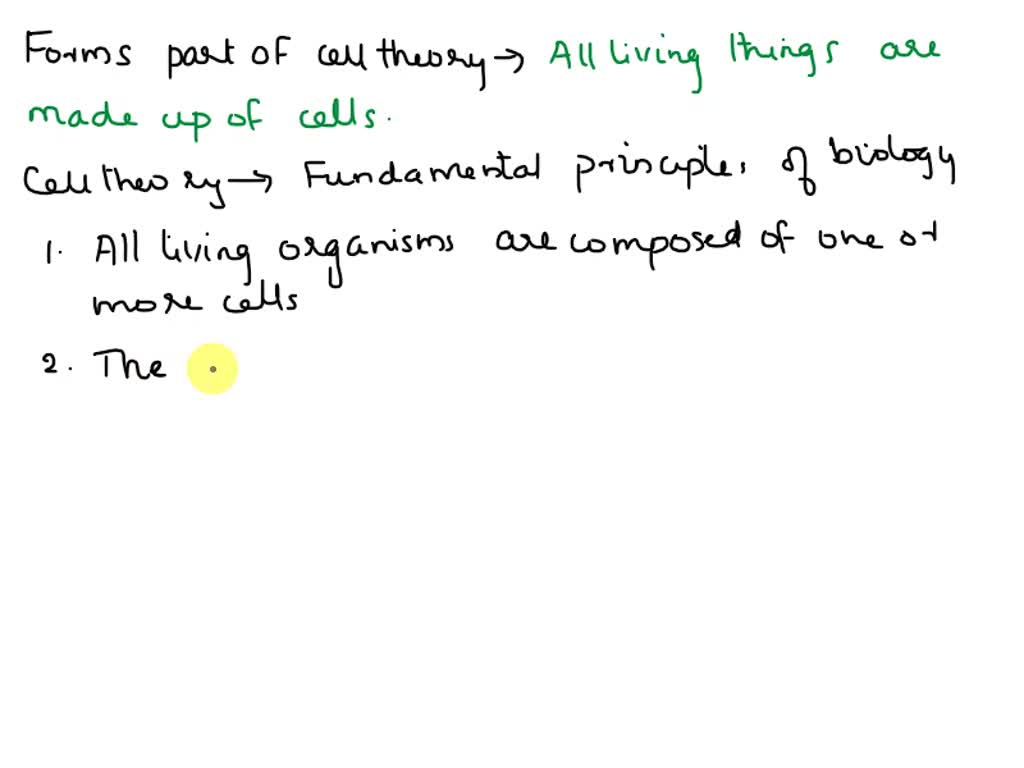 Forms part of cell theory → All living things are
made up of cells.
Cell theory → Fundamental principles of biology
1. All living organisms are composed of one or
more cells
2. The